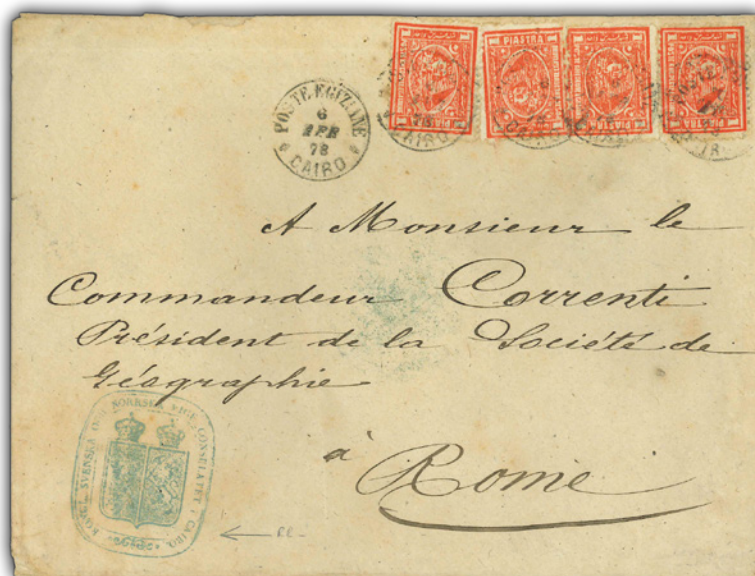 PIASTRA
POSTE EGIZIANE
6
APR
78
CAIRO
CAIRO
A Monsieur le
Commandeur Correnti
Président de la Société de
Géographie
à
Rome
KONGL. SVENSKA OCH NORRSKA VICE CONSULATET I CAIRO
RR -